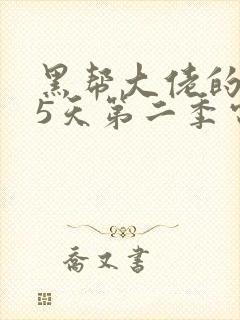 黑帮大佬的
5天第二季
乔又书